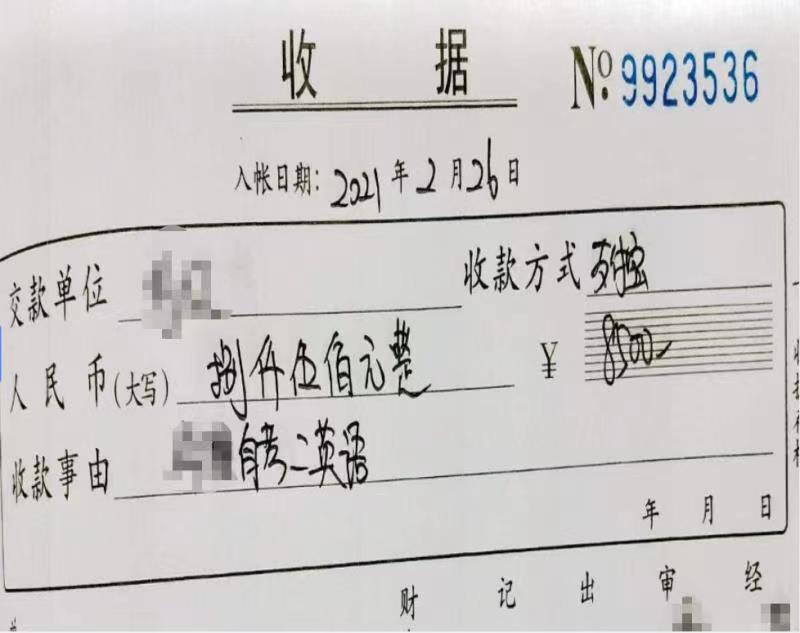 收 据
№ 9923536
入帐日期：2021 年 2 月 26 日
交款单位 收款方式 支付宝
人民币(大写) 捌仟伍佰元整 ¥ 8500
收款事由 自考二英语
年 月 日
财 记 出 审 经